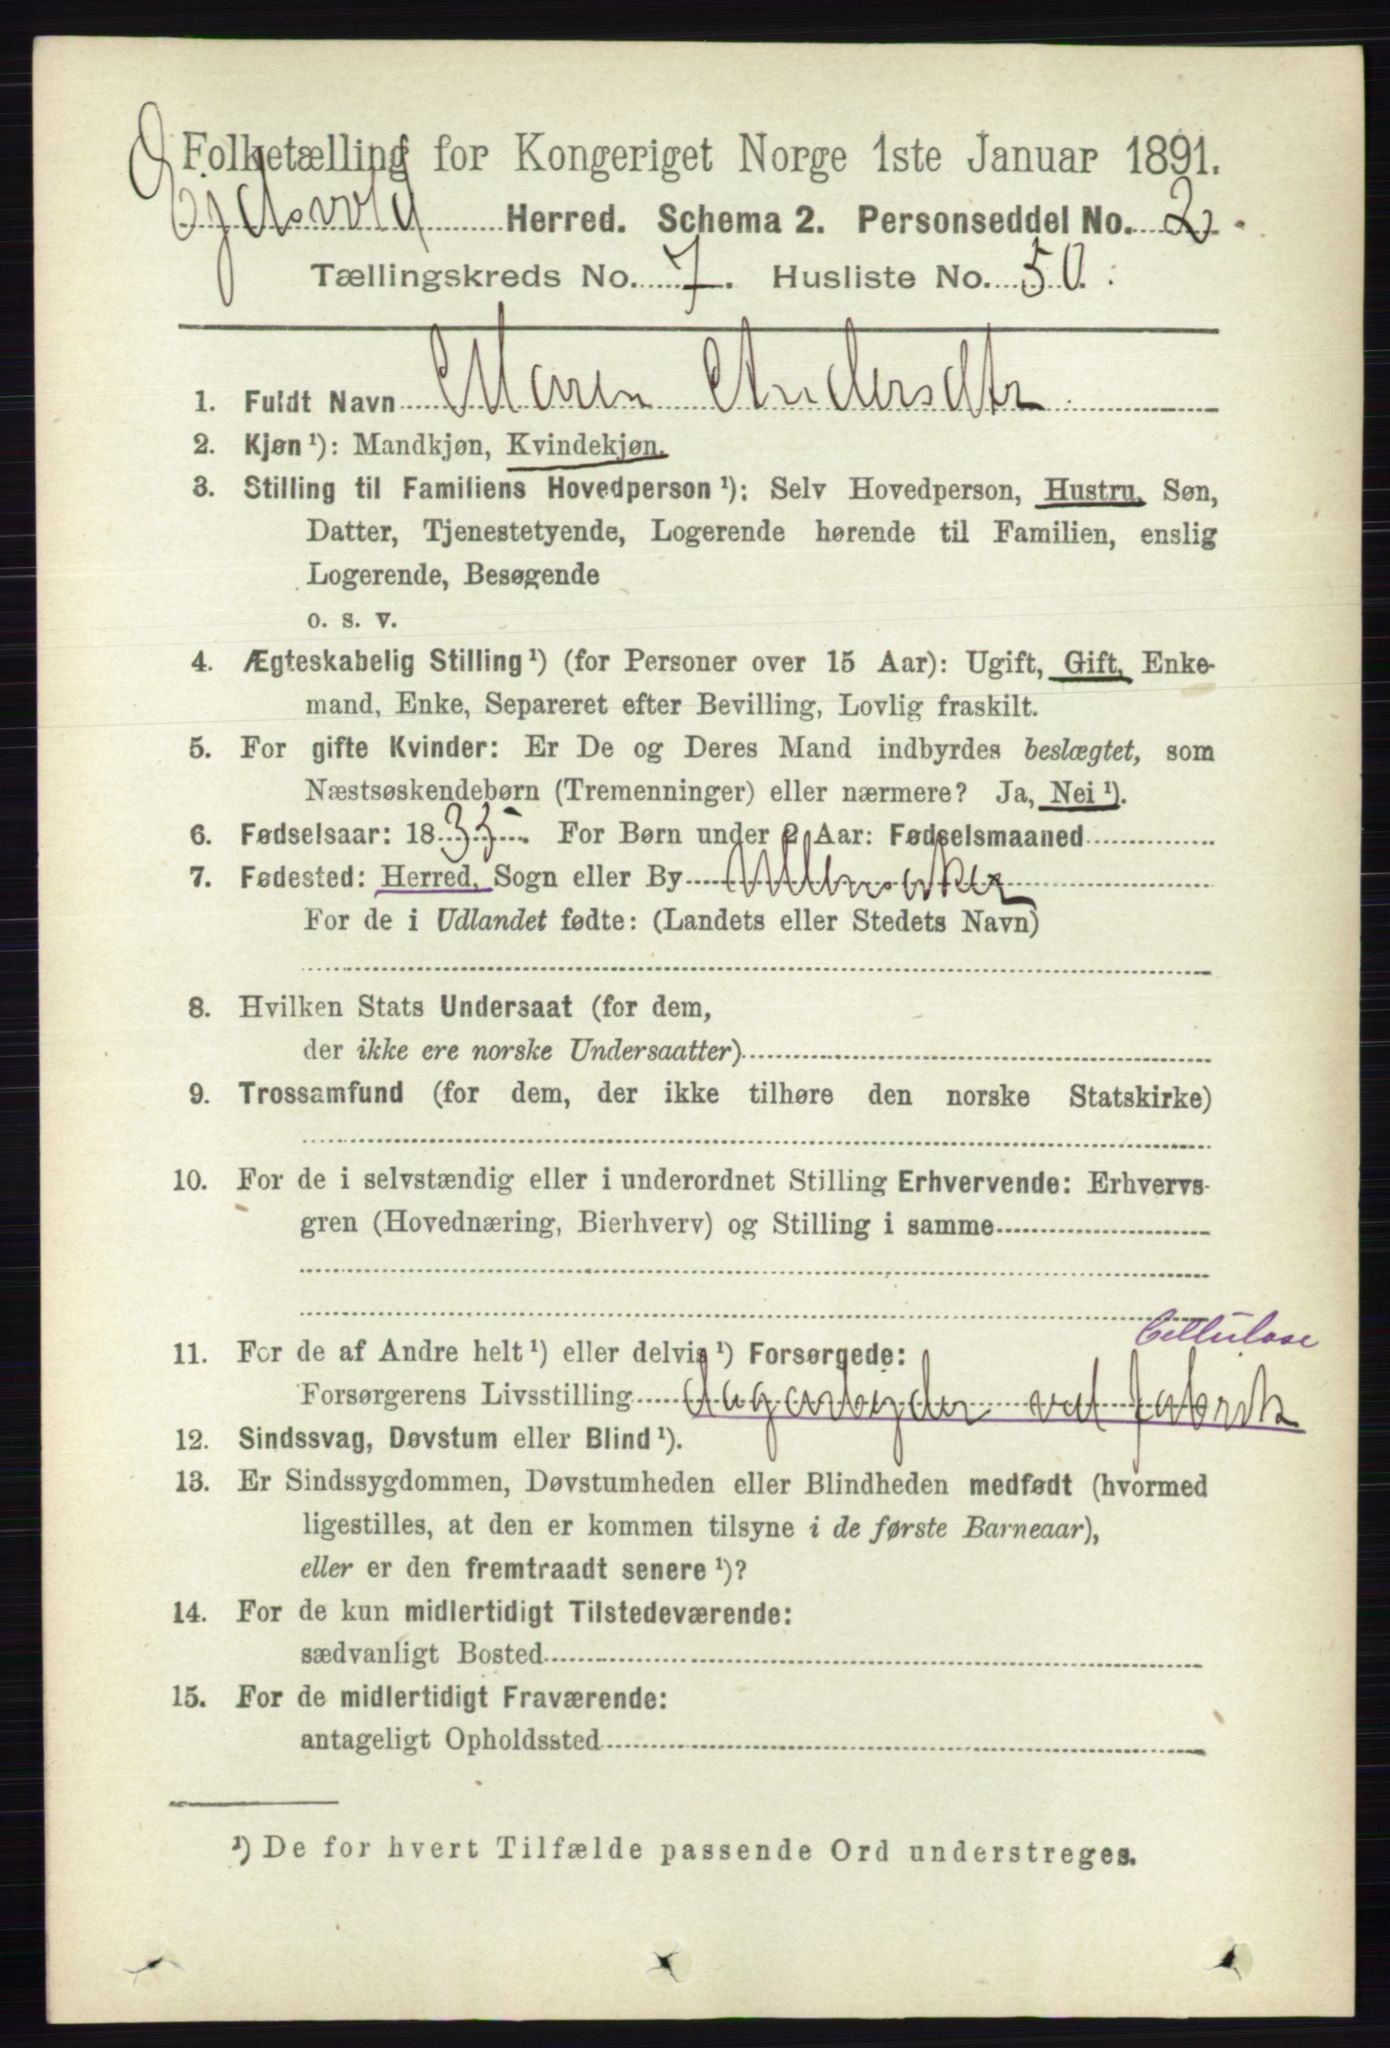 Folketælling for Kongeriget Norge 1ste Januar 1891.
Ejdsvold Herred. Schema 2. Personseddel No. 2.
Tællingskreds No. 7. Husliste No. 50.
1. Fuldt Navn Maren Andersdtr
2. Kjøn ¹): Mandkjøn, Kvindekjøn.
3. Stilling til Familiens Hovedperson ¹): Selv Hovedperson, Hustru, Søn,
Datter, Tjenestetyende, Logerende hørende til Familien, enslig
Logerende, Besøgende
o. s. v.
4. Ægteskabelig Stilling ¹) (for Personer over 15 Aar): Ugift, Gift, Enke-
mand, Enke, Separeret efter Bevilling, Lovlig fraskilt.
5. For gifte Kvinder: Er De og Deres Mand indbyrdes beslægtet, som
Næstsøskendebørn (Tremenninger) eller nærmere? Ja, Nei ¹).
6. Fødselsaar: 1835. For Børn under 2 Aar: Fødselsmaaned
7. Fødested: Herred, Sogn eller By Ullensaker
For de i Udlandet fødte: (Landets eller Stedets Navn)
8. Hvilken Stats Undersaat (for dem,
der ikke ere norske Undersaatter)
9. Trossamfund (for dem, der ikke tilhøre den norske Statskirke)
10. For de i selvstændig eller i underordnet Stilling Erhvervende: Erhvervs-
gren (Hovednæring, Bierhverv) og Stilling i samme
Cellulose
11. For de af Andre helt ¹) eller delvis ¹) Forsørgede:
Forsørgerens Livsstilling dagarbejder ved fabrik
12. Sindssvag, Døvstum eller Blind ¹).
13. Er Sindssygdommen, Døvstumheden eller Blindheden medfødt (hvormed
ligestilles, at den er kommen tilsyne i de første Barneaar),
eller er den fremtraadt senere ¹)?
14. For de kun midlertidigt Tilstedeværende:
sædvanligt Bosted
15. For de midlertidigt Fraværende:
antageligt Opholdssted
¹) De for hvert Tilfælde passende Ord understreges.